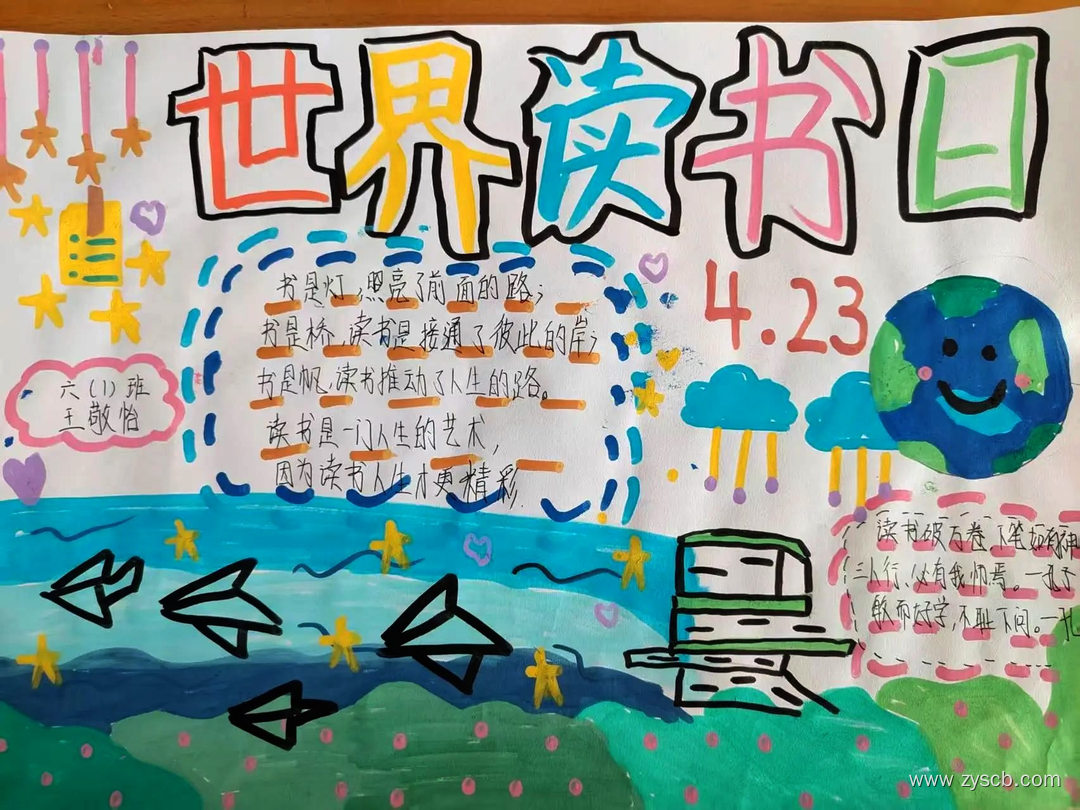 世界读书日
4.23
书是灯，照亮了前面的路；
书是桥，读书是接通了彼此的岸；
书是帆，读书推动了人生的路。
读书是一门人生的艺术，
因为读书人生才更精彩.
六（1）班
王敬怡
读书破万卷 下笔如有神
三人行、必有我师焉。一孔子
敏而好学，不耻下问。一孔
www.zyscb.com